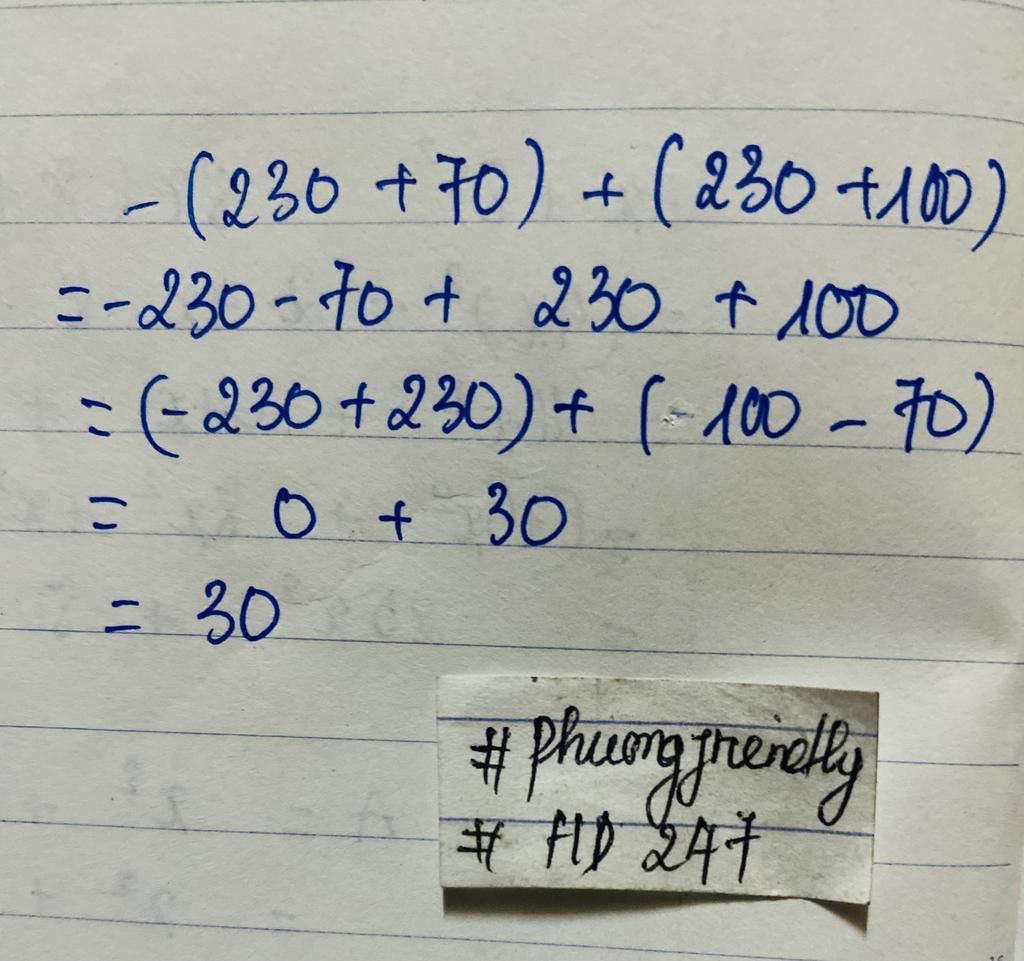 -(230 + 70) + (230 + 100)
= -230 - 70 + 230 + 100
= (-230 + 230) + (- 100 - 70)
= 0 + 30
= 30
# Phuongfriendly
# HD 247